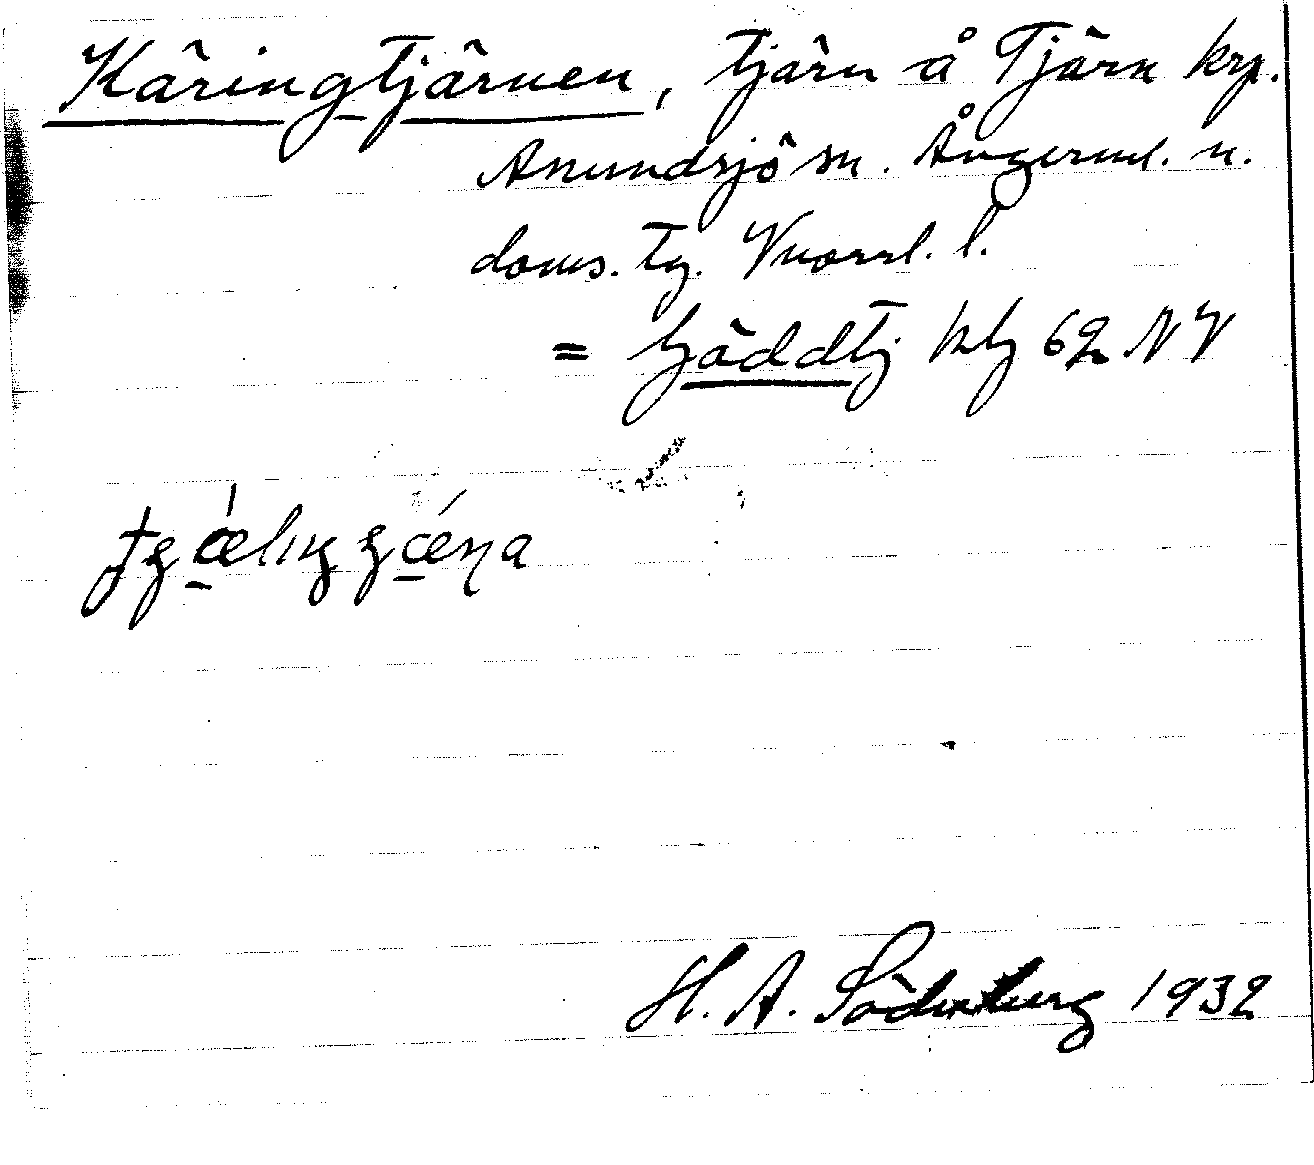 Käringtjärnen, tjärn å Tjärn krp.
Anundsjö sn. Ångerml. n.
doms. tg. Vuorrl. l.
= Gäddtj ktbl 62 NV
H. A. Söderberg 1932